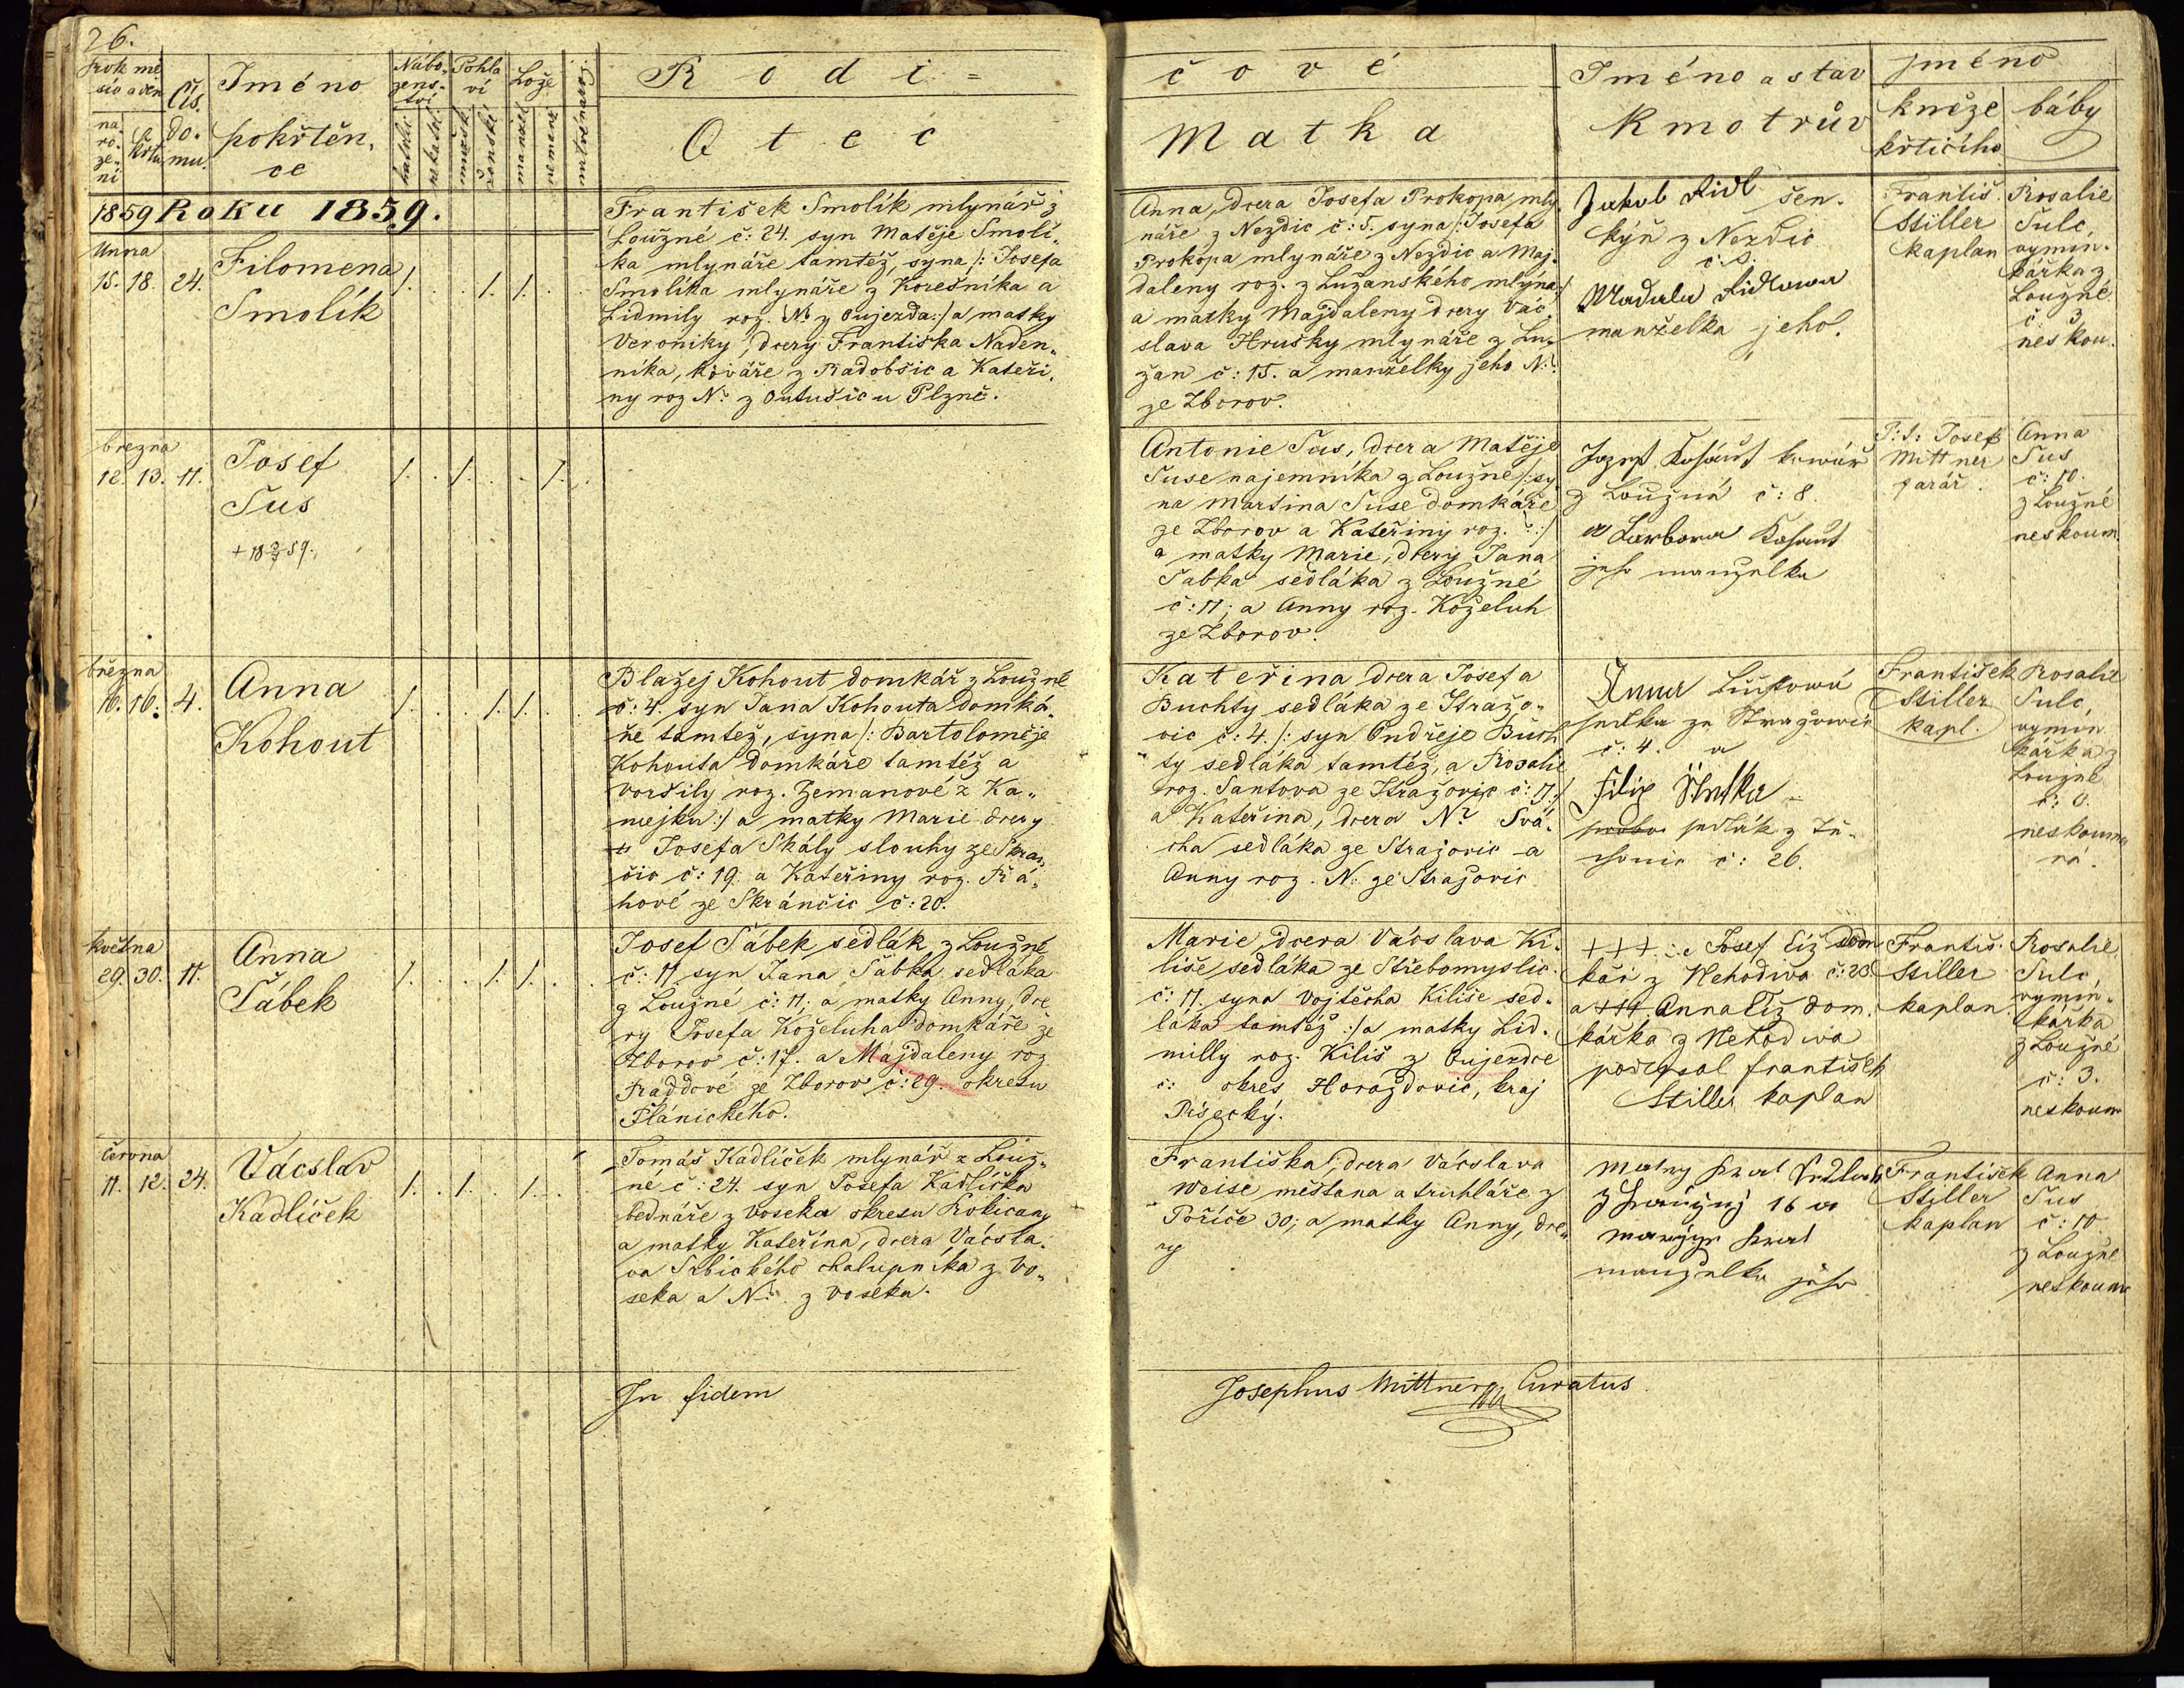 26.
Rok mě-
síc a den
na-
ro-
ze-
ní
a
křtu
Čís.
do-
mu.
Jméno
pokřtěn,
ce
Nábo-
žens-
tví
katolické
nekatol.
Pohla
ví
mužské
ženské
Lože
manžel.
nemanž.
R o d i =
O t e c
č o v é
M a t k a
Jméno a stav
Kmotrův
Jméno
kněze
křtícího
báby
1859 Roku 1859.
Unora
15. 18. 24.
Filomena
Smolík
1. 1. 1.
František Smolík mlynář z
Loužné č: 24. syn Matěje Smolí-
ka mlynáře tamtéž, syna /: Josefa
Smolíka mlynáře z Kořešníka a
Lidmily roz. N: z Oujezda :/ a matky
Veroniky, dcery Františka Naden-
níka, kováře z Radobšic a Kateři-
ny roz N: z Outušic u Plzně.
Anna, dcera Josefa Prokopa mly-
náře z Nezdic č: 5. syna /: Josefa
Prokopa mlynáře z Nezdic a Maj-
daleny roz. z Lužanského mlýna :/
a matky Majdaleny dcery Vác-
slava Hrušky mlynáře z Lu-
žan č: 15. a manželky jeho N:
ze Zborov.
Jakob Ridl šen-
kýř z Nezdic
Madalu Ridlowa
manželka jeho.
Františ.
Stiller
kaplan
Rosalie
Šulc,
vymin-
kářka z
Loužné
č. 3
neskou.
března
12. 13. 11.
Josef
Sus
+ 18 3/4 59.
1. 1. 1.
Antonie Sus, dcera Matěje
Suse najemníka z Loužné /: sy-
na Martina Suse domkáře
ze Zborov a Kateřiny roz. :/
a matky Marie, dcery Jana
Šabka sedláka z Loužné
č: 11; a Anny roz. Koželuh
ze Zborov.
Jozef Kohaut kowář
z Loužná č: 8.
a Barbora Kohaut
jeho manzelka
P: T: Josef
Mittner
farář.
Anna
Sus
č: 10.
z Loužné
neskoum.
března
16. 16. 4.
Anna
Kohout
1. 1. 1.
Blažej Kohout domkář z Loužné
č: 4. syn Jana Kohouta domká-
ře tamtéž, syna /: Bartoloměje
Kohouta domkáře tamtéž a
Voršily roz. Zemanové z Ka-
mejka :/ a matky Marie dcery
Josefa Skály slouhy ze Skran-
čic č: 19. a Kateřiny roz. Rá-
hové ze Skránčic č: 20.
Kateřina dcera Josefa
Buchty sedláka ze Stražo-
vic č: 4. /: syn Ondřeje Buch-
ty sedláka tamtéž, a Rosalie
roz. Šantova ze Stražovic č: 11 :/
a Kateřina, dcera N: Svá-
cha sedláka ze Stražovic a
Anny roz. N: ze Stražovic
Anna
sedlka ze Stražowic
č: 4. a
Filip
sedlák z
č: 26.
František
Stiller
kapl.
Rosalie
Šulc,
vymin
kářka z
Loužné
neskouma
ná.
května
29. 30. 11.
Anna
Šábek
1. 1. 1.
Josef Šábek, sedlák z Loužné
č: 11. syn Jana Šábka sedláka
z Loužné č: 11. a matky Anny, dce
ry Josefa Koželuha domkáře ze
Zborov č: 17. a Majdaleny roz
Ráddové ze Zborov č: 29. okresu
Plánického.
Marie, dcera Václava Ki-
liše, sedláka ze Střebomyslic
č: 11. syna Vojtěcha Kiliše sed-
láka tamtéž :/ a matky Lid-
milly roz. Kiliš z Oujezdce
č: okres Horažďovic, kraj
Písecký.
+++ Josef Liž dom
kář z Nehodiva č: 23
a +++ Anna Liž dom.
kářka z Nehodiva
podepsal František
Stiller kaplan
Františ.
Stiller
kaplan.
Rosalie
Šulc,
vymin-
kářka
z Loužné
č: 3.
neskoum
června
11. 12. 24.
Vácslav
Kadlíček
1. 1. 1.
Tomáš Kadlíček mlynář z Louž-
né č: 24. syn Josefa Kadlíčka
bednáře z Voseka okresu Rokicany
a matky Kateřina, dcera Václa-
va Srbického chalupníka z Vo-
seka a N: z Voseka.
Františka, dcera Vácslava
Weise měšťana a truhláře z
Poříče 30; a matky Anny, dce-
ry
16 a
manzelka jeho
František
Stiller
kaplan
Anna
Sus
č: 10
z Loužné
neskoum
In fidem
Josephus Mittner Curatus.